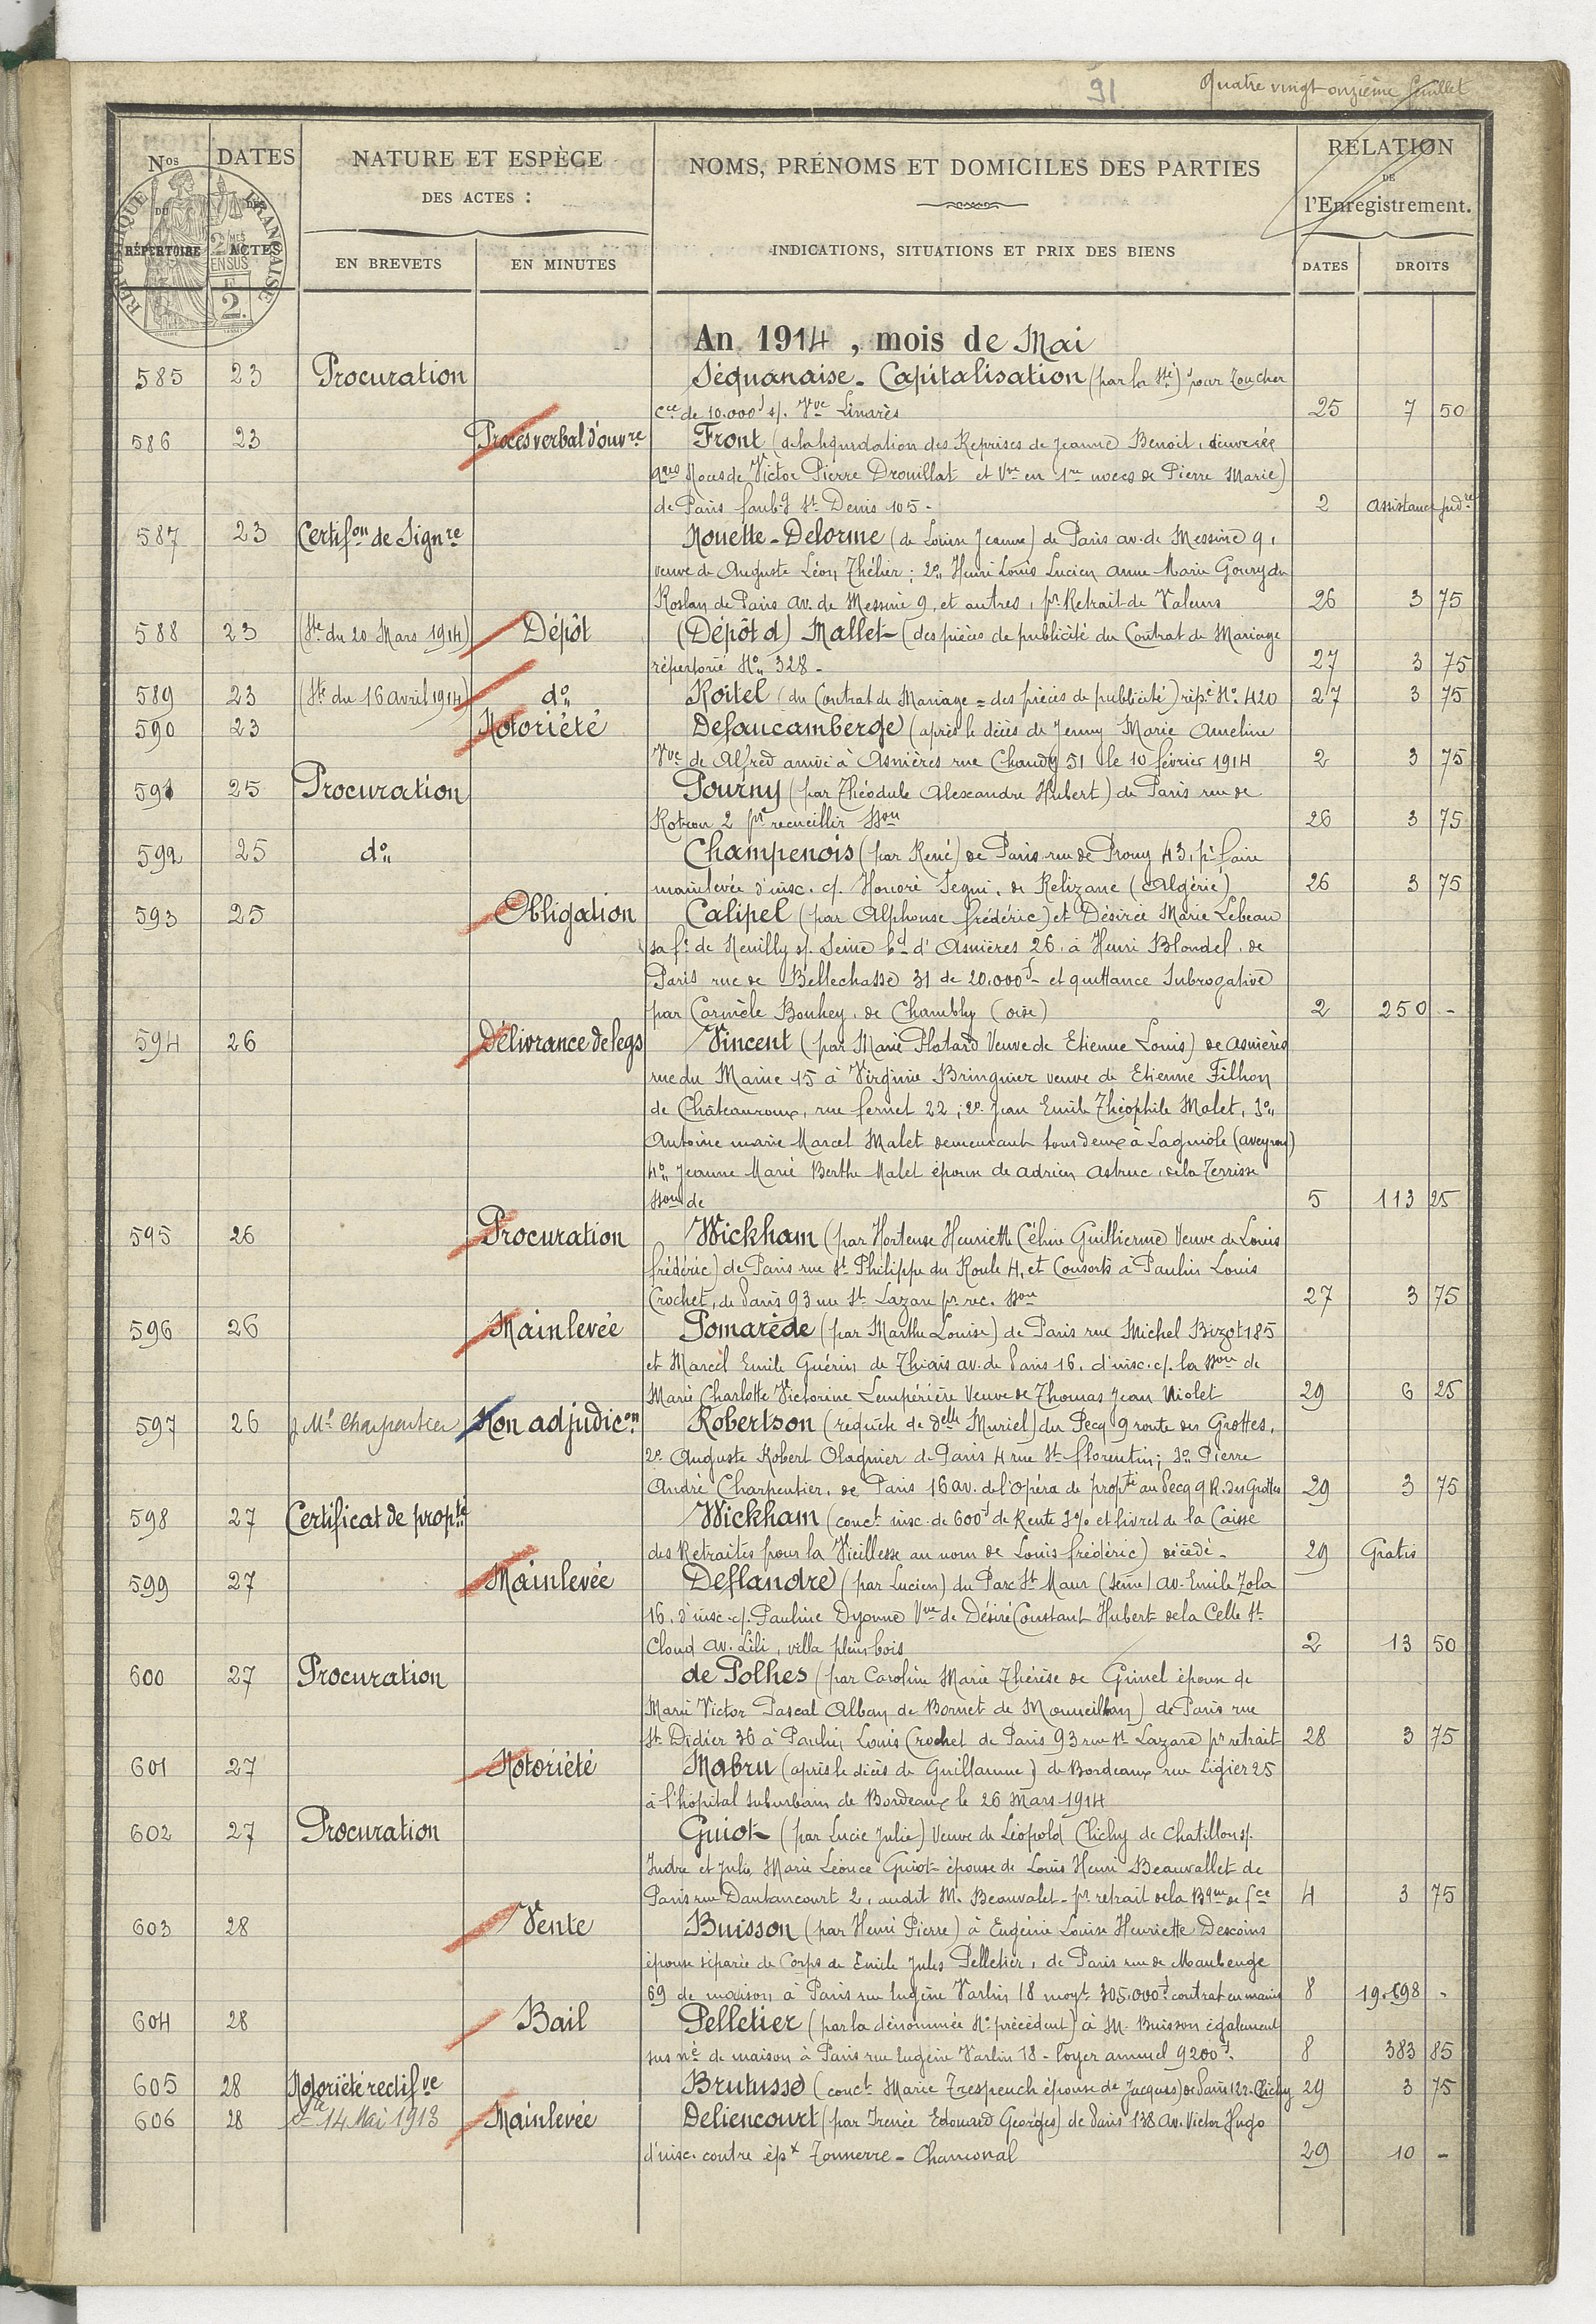 91
Quatre vingt onzième feuillet
Nos DU RÉPERTOIRE
DATES DES ACTES
NATURE ET ESPÈCE DES ACTES :
EN BREVETS
EN MINUTES
NOMS, PRÉNOMS ET DOMICILES DES PARTIES
INDICATIONS, SITUATIONS ET PRIX DES BIENS
RELATION DE l'Enregistrement.
DATES
DROITS
RÉPUBLIQUE FRANÇAISE
2 MES EN SUS
2
An 1914, mois de Mai
585 23 Procuration Séquanaise - Capitalisation (par la Sté) pour toucher
cce de 10.000f s/. Vve Linarès 25 7 50
586 23 Procès verbal d'ouvre Front (de la liquidation des Reprises de Jeanne Benoit, divorcée
qres Noces de Victor Pierre Drouillat et Vve en 1res noces de Pierre Marie)
de Paris faubg St Denis 105 - 2 assistance judre
587 23 Certifon de Signre Nouette-Delorme (de Louise Jeanne) de Paris av. de Messine 9,
veuve de Auguste Léon Thélier ; 2o Henri Louis Lucien Anne Marie Goury du
Roslan de Paris av. de Messine 9, et autres, pr Retrait de Valeurs 26 3 75
588 23 (Ste du 20 Mars 1914) Dépôt (Dépôt d) Mallet (des pièces de publicité du Contrat de Mariage
répertorié No 328 - 27 3 75
589 23 (Ste du 16 avril 1914) do Roitel (du Contrat de Mariage = des pièces de publicité) répé No 420 27 3 75
590 23 Notoriété Defaucamberge (après le décès de Jenny Marie Ameline
Vve de Alfred arrivé à Asnières rue Chanzy 51 le 10 février 1914 2 3 75
591 25 Procuration Pourny (par Théodule Alexandre Hubert) de Paris rue de
Rotrou 2 pr recueillir sson 26 3 75
592 25 do Champenois (par René) de Paris rue de Prony 43, pr faire
mainlevée d'insc. c/. Honoré Segui, de Relizane (Algérie) 26 3 75
593 25 Obligation Calipel (par Alphonse frédéric) et Désirée Marie Lebeau
sa fe de Neuilly s/. Seine bd d'Asnières 26, à Henri Blondel, de
Paris rue de Bellechasse 31 de 20.000f - et quittance Subrogative
par Carmèle Bonhey, de Chambly (oise) 2 250 -
594 26 Délivrance de legs Vincent (par Marie Platard Veuve de Etienne Louis) de Asnières
rue du Maine 15 à Virginie Bringuier veuve de Etienne Filhon
de Châteauroux, rue fernet 22 ; 2o Jean Emile Théophile Malet, 3o
Antoine marie Marcel Malet demeurant tous deux à Laguiole (aveyron)
4o Jeanne Marie Berthe Malet épouse de adrien Astruc, de la Terrisse
sson de 5 113 25
595 26 Procuration Wickham (par Hortense Henriette Céline Guillierme Veuve de Louis
frédéric) de Paris rue St Philippe du Roule 4, et Consorts à Paulin Louis
Crochet, de Paris 93 rue St Lazare pr rec. sson 27 3 75
596 26 Mainlevée Pomarède (par Marthe Louise) de Paris rue Michel Bizot 185
et Marcel Emile Guérin de Thiais av. de Paris 16, d'insc. c/. la sson de
Marie Charlotte Victorine Lempérière Veuve de Thomas Jean Violet 29 6 25
597 26 Me Charpentier Non adjudicon Robertson (requête de delle Muriel) du Pecq 9 route des Grottes,
2o Auguste Robert Olagnier de Paris 4 rue St florentin ; 3o Pierre
André Charpentier, de Paris 16 av. de l'opéra de propté au Pecq 9 R. des Grottes 29 3 75
598 27 Certificat de propté Wickham (conct insc. de 600f de Rente 3% et livret de la Caisse
des Retraites pour la Vieillesse au nom de Louis frédéric) décédé - 29 Gratis
599 27 Mainlevée Deflandre (par Lucien) du Parc St Maur (Seine) av. Emile Zola
16, d'insc. c/. Pauline Dyonne Vve de Désiré Constant Hubert de la Celle St
Cloud av. Lili, villa plein bois 2 13 50
600 27 Procuration de Polhes (par Caroline Marie Thérèse de Ginel épouse de
Marie Victor Pascal Alban de Bornet de) de Paris rue
St Didier 36 à Paulin Louis Crochet de Paris 93 rue St Lazare pr retrait 28 3 75
601 27 Notoriété Mabru (après le décès de Guillaume) de Bordeaux rue Ligier 25
à l'hopital suburbain de Bordeaux le 26 mars 1914
602 27 Procuration Guiot (par Lucie Julie) Veuve de Léopold Clichy de Chatillon s/.
Indre et Julie Marie Léonce Guiot épouse de Louis Henri Beauvallet de
Paris rue Dautancourt 2, audit M. Beauvalet pr retrait de la Bque de fce 4 3 75
603 28 Vente Buisson (par Henri Pierre) à Eugénie Louise Henriette Descoins
épouse séparée de Corps de Emile Jules Pelletier, de Paris rue de Maubeuge
69 de maison à Paris rue Eugène Varlin 18 moyt 305.000f contrat en mains 8 19.698 -
604 28 Bail Pelletier (par la dénommée No précédent) à M. Buisson également
sus né de maison à Paris rue Eugène Varlin 18 - loyer annuel 9200f. 8 383 85
605 28 Notoriété rectifve Brutusse (conct Marie Trespeuch épouse de Jacques) de Paris 122 - Clichy 29 3 75
606 28 Ste 14 Mai 1913 Mainlevée Deliencourt (par Irenée Edouard Georges) de Paris 138 av. Victor Hugo
d'insc. contre épx Tonnerre - Chanconal 29 10 -